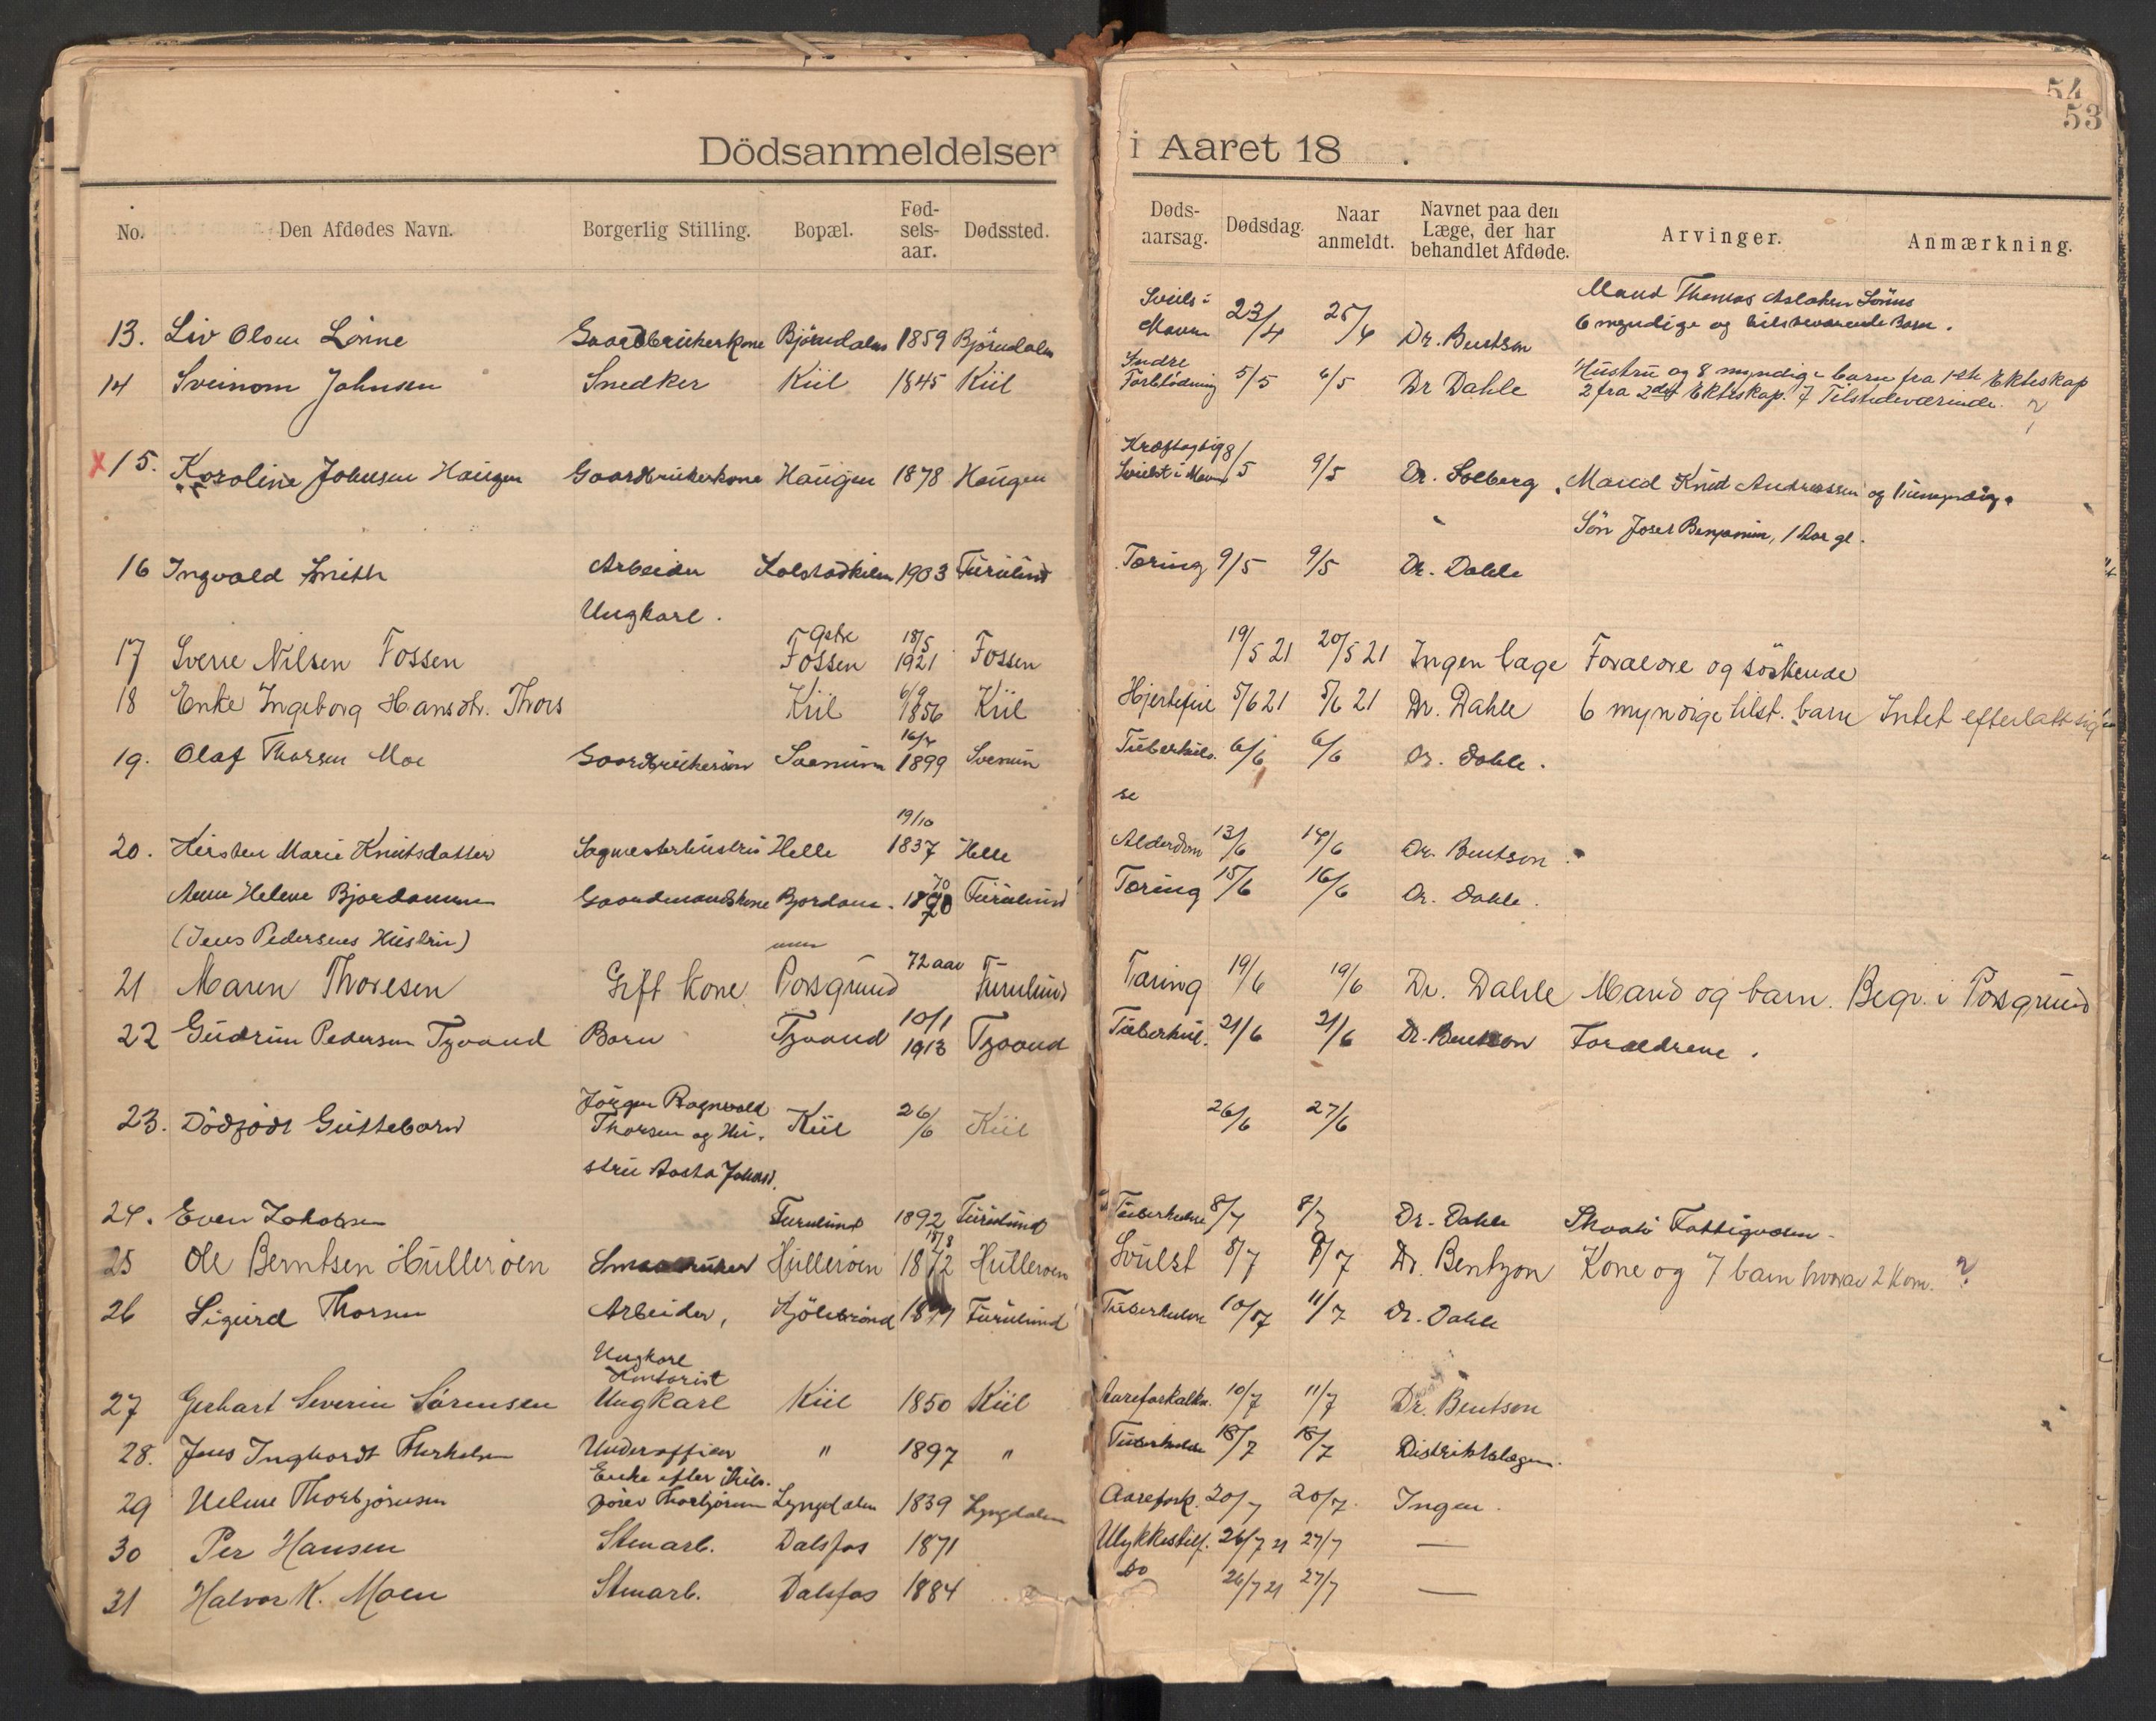 54
53
Dödsanmeldelser i Aaret 18 .
No. Den Afdødes Navn. Borgerlig Stilling. Bopæl. Fød-sels-aar. Dødssted. Døds-aarsag. Dødsdag. Naar anmeldt. Navnet paa den Læge, der har behandlet Afdøde. Arvinger. Anmærkning.
Mand Thomas Aslaksen Lönne
13. Liv Olsen Lönne Gaardbrukerkone Björndalen 1859 Björndalen Svulst i Maven 23/4 25/4 Dr. Bentson 6 myndige og tilstevärende Barn.
14 Sveinom Johnsen Snedker Kiil 1845 Kiil Indre Forblödning 5/5 6/5 Dr Dahle Hustru og 8 myndige barn fra 1ste Ekteskap
2 fra 2det Ekteskap. 7 Tilstedeværende. ?
x 15. Karoline Johnsen Haugen Gaardbrukerkone Haugen 1878 Haugen Kræftagtig Svulst i Maven 8/5 9/5 Dr. Solberg Mand Knut Andreassen og 1 umyndig
Sön Josef Benjamin, 1 Aar gl.
16 Ingvald Smith Arbeider Kolstadkilen 1903 Furulund Tæring 9/5 9/5 Dr. Dahle
Ungkarl.
17 Sverre Nilsen Fossen Østre Fossen 18/5 1921 Fossen 19/5 21 20/5 21 Ingen læge Forældre og söskende
18 Enke Ingeborg Hansdtr. Thors Kiil 6/9 1856 Kiil Hjertefeil 5/6 21 5/6 21 Dr. Dahle 6 myndige tilst. barn Intet efterlatt sig
19. Olaf Thorsen Moe Gaardbrukersön Svenum 16/4 1899 Svenum Tuberkulo. 6/6 6/6 Dr. Dahle.
se
20. Kirsten Marie Knutsdatter Sagmesterhustru Helle 19/10 1837 Helle Alderdom 13/6 14/6 Dr. Bentson.
Anne Helene Bjordammen Gaardmandskone Bjordam- 1870 Furulund Tæring 15/6 16/6 Dr. Dahle.
(Jens Pedersens Hustru) men
21 Maren Thoresen Gift kone Porsgrund 72 aar Furulund Tæring 19/6 19/6 Dr. Dahle Mand og barn. Begr. i Porsgrund
22 Gudrun Pedersen Tyvand Barn Tyvand 10/1 1913 Tyvand Tuberkul. 21/6 21/6 Dr. Bentson Forældrene.
Jörgen Ragnvald
23. Dödfödt Guttebarn Thorsen og Hu- Kiil 26/6 Kiil 26/6 27/6
stru Aasta Johnsd.
24. Even Jakobsen Furulund 1892 Furulund Tuberkulose 8/7 8/7 Dr. Dahle Skaatö Fattigvæsen
25 Ole Berntsen Hulleröen Smaabruker Hulleröen 18/8 1872 Hulleröen Svulst 8/7 9/7 Dr. Bentzon Kone og 7 barn hvorav 2 kom. ?
26 Sigurd Thorsen Arbeider, Kjölebrönd Furulund Tuberkulose 10/7 11/7 Dr. Dahle
Ungkarl
Kontorist
27 Gerhart Severin Sörensen Ungkarl Kiil 1850 Kiil Aareforkalkn. 10/7 11/7 Dr. Bentsen
28. Jens Inghardt Therkelsen Underofficer " 1897 " Tuberkulose 18/7 18/7 Distriktslægen.
Enke efter
29 Helene Thorbjörnsen Thorbjörnsen Lyngdalen 1839 Lyngdalen Aarefork. 20/7 20/7. Ingen.
30 Per Hansen Stenarb. Dalsfos 1871 Ulykkestilf. 26/7 21 27/7 —
31 Halvor K. Moen Stenarb. Dalsfos 1884 Do 26/7 21 27/7 —